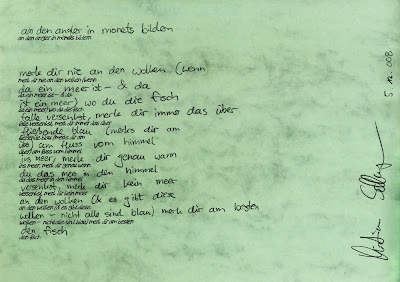 an den angler in monets bilden
an den angler in monets bildern
merk dir nie an den wolken (wenn
merk dir nie an den wolken (wenn
da ein meer ist - & da
da ein meer ist – & da
ist ein meer) wo du die fisch
ist ein meer) wo du die fisch
falle versenkst, merk dir immer das über
falle versenkst, merk dir immer das über
fließende blau (merks dir am
fließende blau (merks dir am
am fluss vom himmel
am fluss vom himmel
ins meer) merk dir genau wann
ins meer) merk dir genau wann
du das meer in den himmel
du das meer in den himmel
versenkst, merk dir kein meer
versenkst, merk dir kein meer
an den wolken (& es gibt diese
an den wolken (& es gibt diese
wolken - nicht alle sind blau) merk dir am besten
wolken – nicht alle sind blau) merk dir am besten
den fisch
den fisch
008